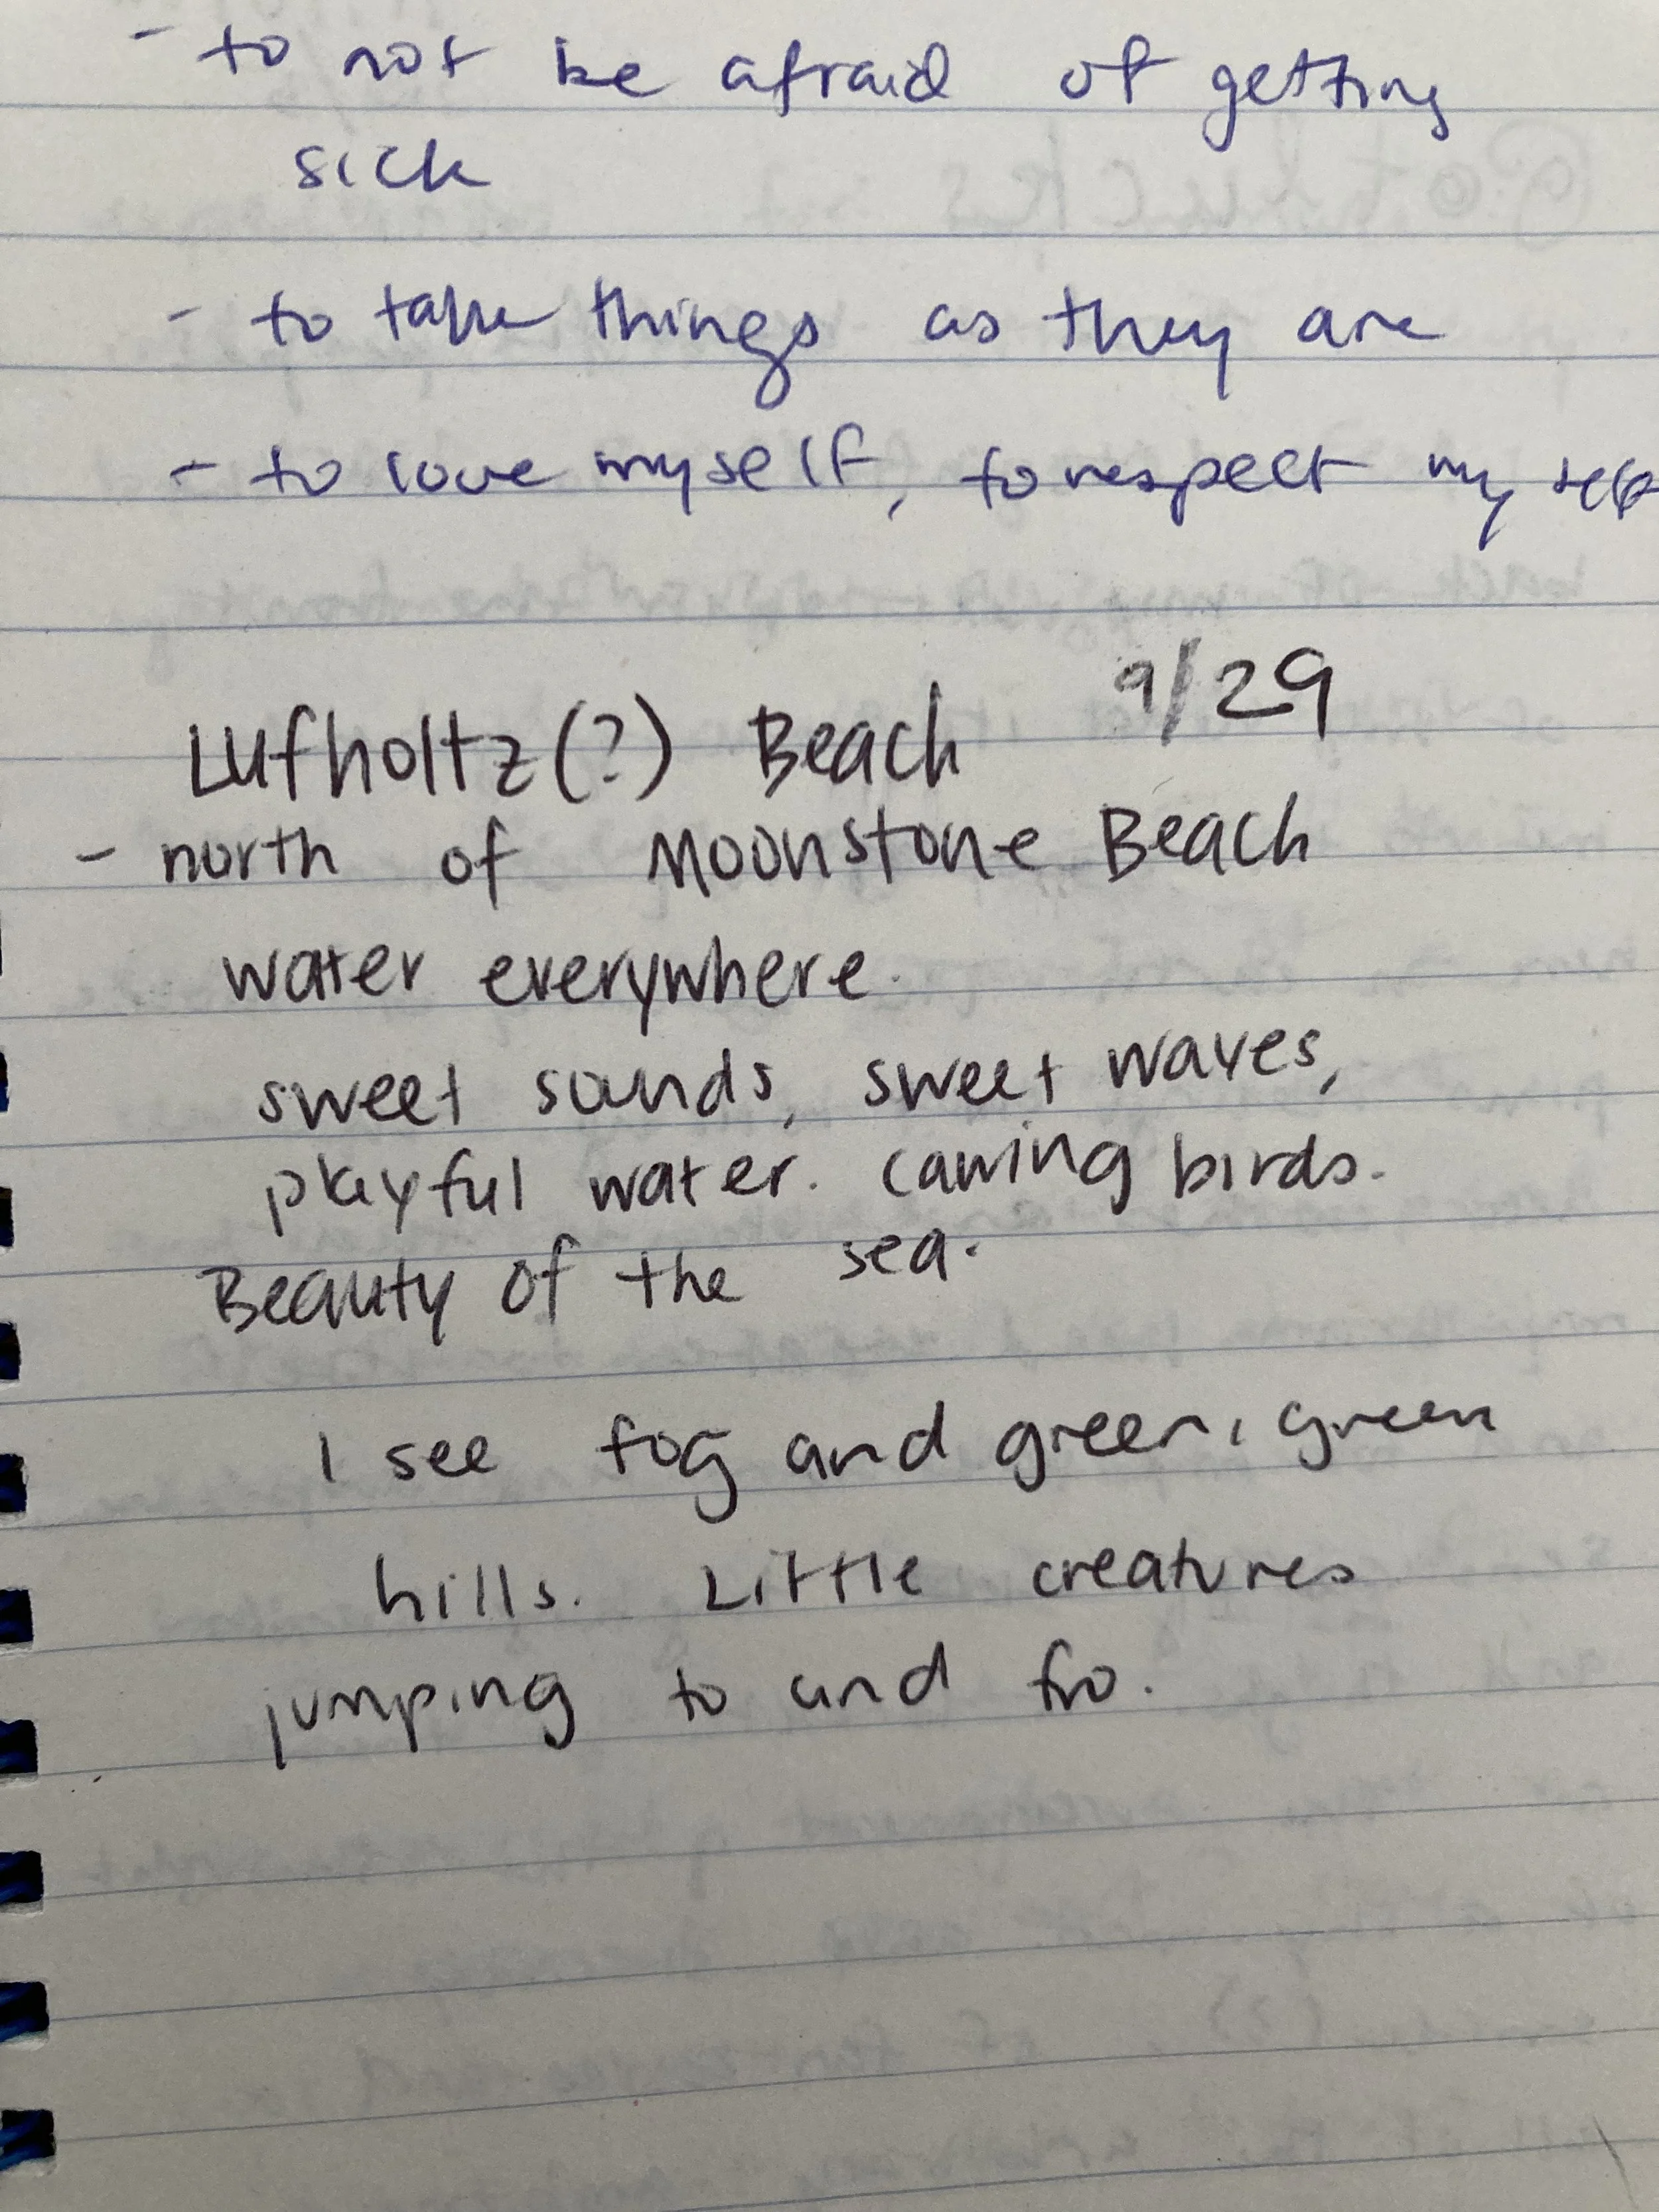 - to not be afraid of getting
sick
- to take things as they are
- to love myself, to respect my self
Lufholtz(?) Beach 9/29
- north of Moonstone Beach
water everywhere.
sweet sounds, sweet waves,
playful water. Cawing birds.
Beauty of the sea.
I see fog and green, green
hills. Little creatures
jumping to and fro.